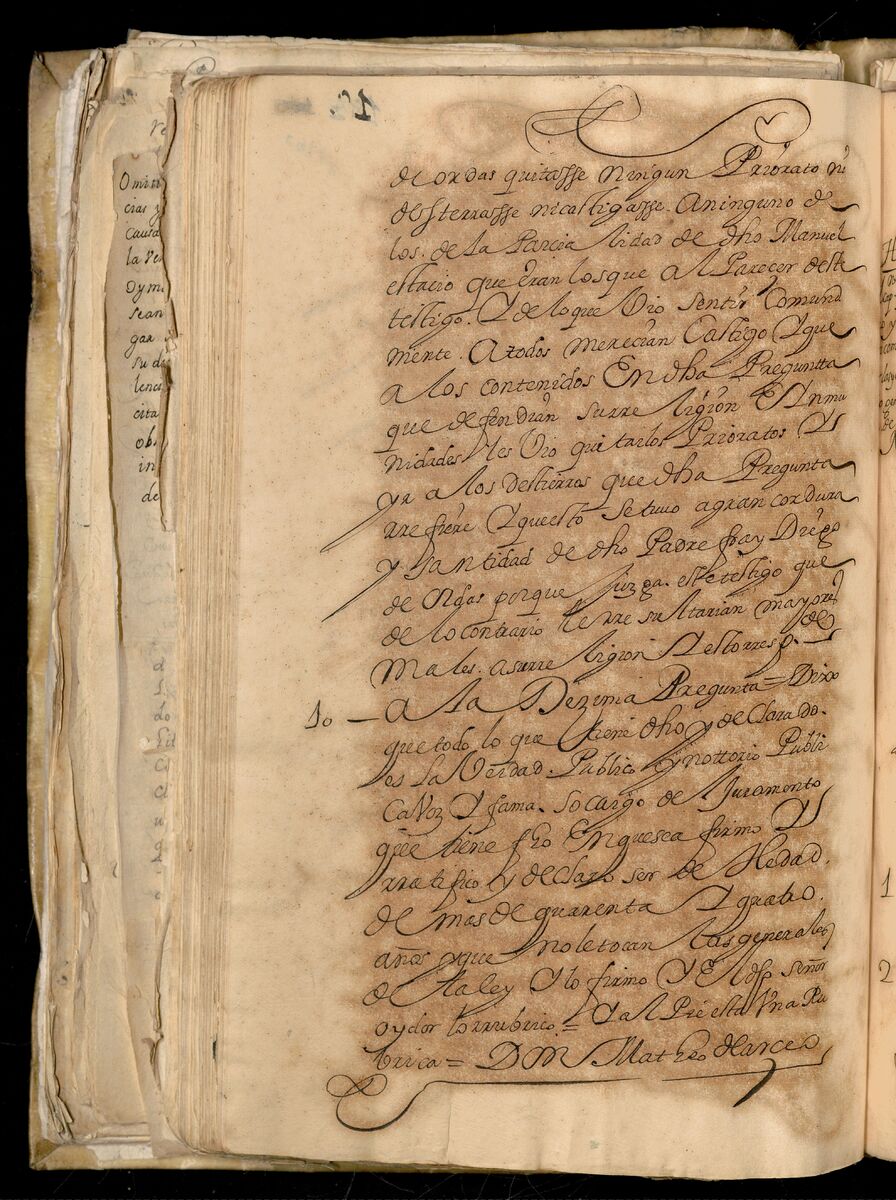 de ordas quitasse ningun Priorato ni
desterrasse nicastigasse. Aninguno de
los. de la Parcia lidad de dho Manuel
estacio que eran losque al Parecer deste
testigo. Y de loque Vio sentir Comund
mente. A todos merecian Castigo Y que
a los contenidos En dha Preguntta
que defendian surre ligion Es Inmu
nidades les Vio quitarlos Prioratos Y
yr a los destierros que dha Pregunta
rrefiere Y questo se tuvo agran cordura
y santidad de dho Padre fray Diego
de Ordas porque juzga este testigo que
de lo contrario le rre sultarian mayores
males. asurre ligion Y esto rresp. de
10 — A la Dezima Pregunta = Dixo
que todo lo que tiene dho y declarado.
es la Verdad. Publico y nottorio Publi
ca Voz Y fama. so cargo de Juramento
que tiene fho En quesea firmo Y
rratifico y declaro ser de Hedad.
de mas de quarenta Y quatro.
años yque noletocan las generales
de la ley Y lo firmo Y El dho señor
oydor lo rrubrico = Y al Pie esta Una Ru
brica = Don Matheo de arce
Omini
cias y
Causa
la ve
Oymi
sean
gar
su de
lenc
cita
ob
in
de